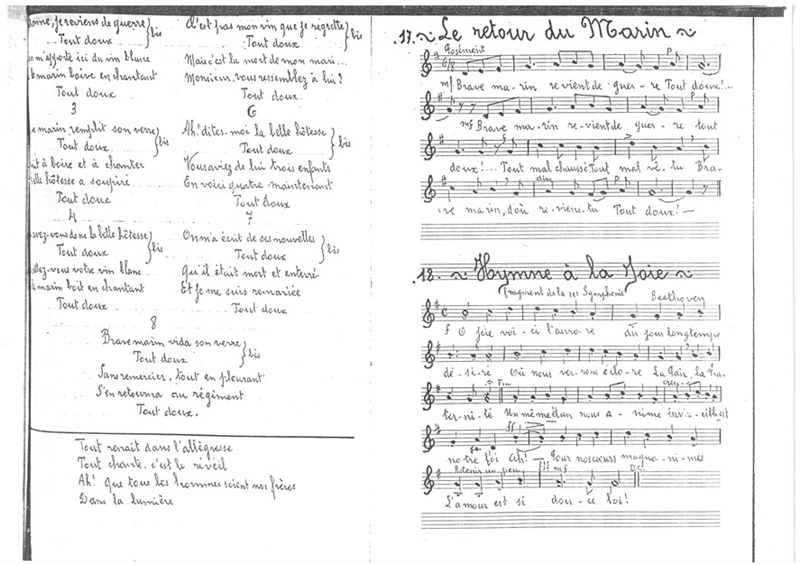 ame, je reviens de guerre } bis
Tout doux
m'apporte ici du vin blanc
marin boive en chantant
Tout doux
3
marin remplit son verre } bis
Tout doux
à boire et à chanter
hôtesse a soupiré
Tout doux
4
donc la belle hôtesse } bis
Tout doux
vous votre vin blanc
marin boit en chantant
Tout doux
C'est pas mon vin que je regrette } bis
Tout doux
Mais c'est la mort de mon mari...
Monsieur, vous ressemblez à lui?
Tout doux.
6
Ah! dites-moi la belle hôtesse } bis
Tout doux
Vous aviez de lui trois enfants
En voici quatre maintenant
Tout doux
7
On m'a écrit de ses nouvelles } bis
Tout doux
Qu'il était mort et enterré
Et je me suis remariée
Tout doux
8
Brave marin vida son verre } bis
Tout doux
Sans remercier, tout en pleurant
S'en retourna au régiment
Tout doux.
Tout renaît dans l'allégresse
Tout chante, c'est le réveil
Ah! que tous les hommes soient nos frères
Dans la lumière
17. ~ Le retour du Marin ~
Posément
mf Brave ma-rin revient de guer-re Tout doux!...
mf Brave ma-rin re-vient de guer-re tout
doux!... Tout mal chaussé, Tout mal vê-tu Bra-
ve marin, d'où re-viens-tu Tout doux!-
18. ~ Hymne à la Joie ~
fragment de la IXe Symphonie Beethoven
f O joie voi-ci l'auro-re du jour longtemps
dé-si-ré Où nous ver-rons éclo-re La Paix, la Fra-
Fin cres.
ter-ni-té Un même élan nous a-nime invin-cible est
ff
notre foi Ah! Pour nos cœurs magna-ni-mes
Retenir un peu mf D.C.
L'amour est si dou-ce loi!